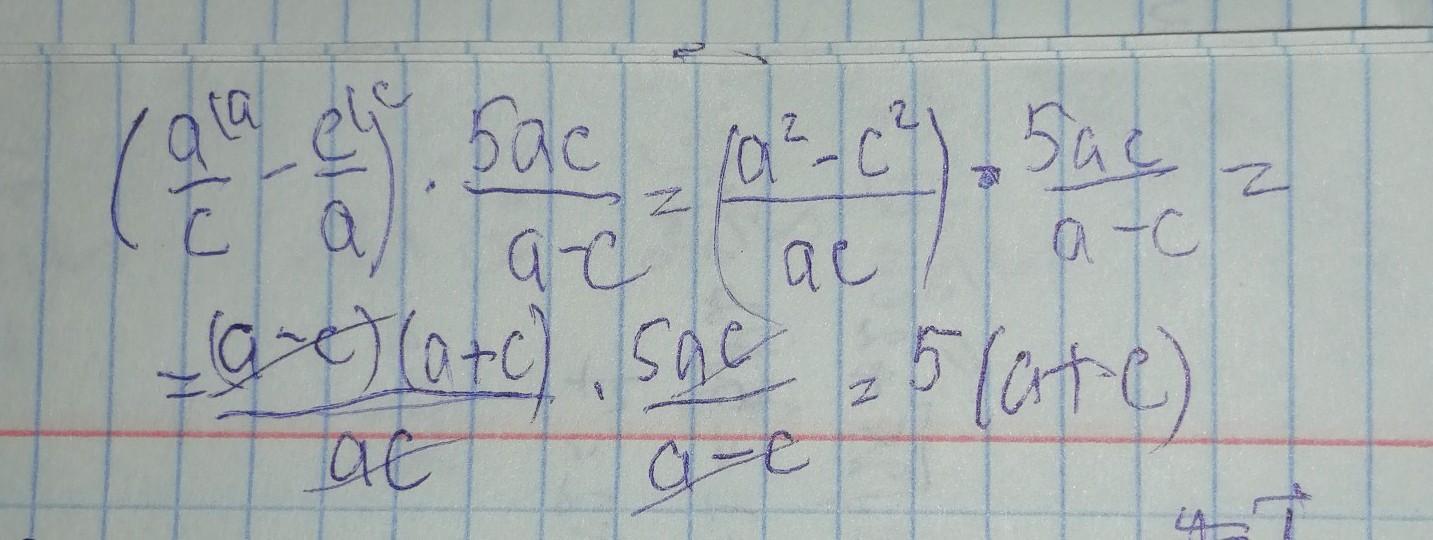 (a⁽ᵃ/c - c⁽ᶜ/a) · 5ac/a-c = (a²-c²/ac) · 5ac/a-c =
= (a-c)(a+c)/ac · 5ac/a-c = 5(a+c)